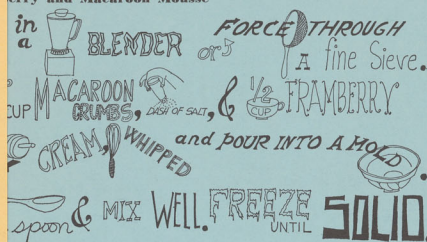 erry and Macaroon Mousse
in a BLENDER or FORCE THROUGH A fine Sieve.
CUP MACAROON CRUMBS, DASH OF SALT, & 1/2 CUP FRAMBERRY
CREAM, WHIPPED and POUR INTO A MOLD.
spoon & MIX WELL. FREEZE UNTIL SOLID.